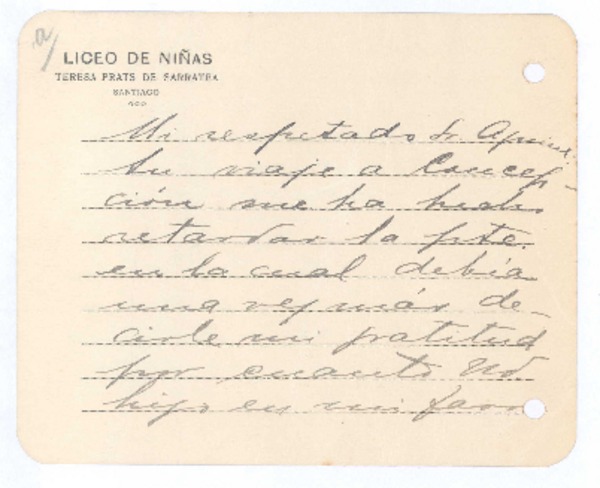 a/
LICEO DE NIÑAS
TERESA PRATS DE SARRATEA
SANTIAGO
Mi respetado Sr.
Su viaje a Concep-
ción me ha hecho
retardar la pte.
en la cual debía
una vez más de-
cirle mi gratitud
por cuanto Ud
hizo en mi favor